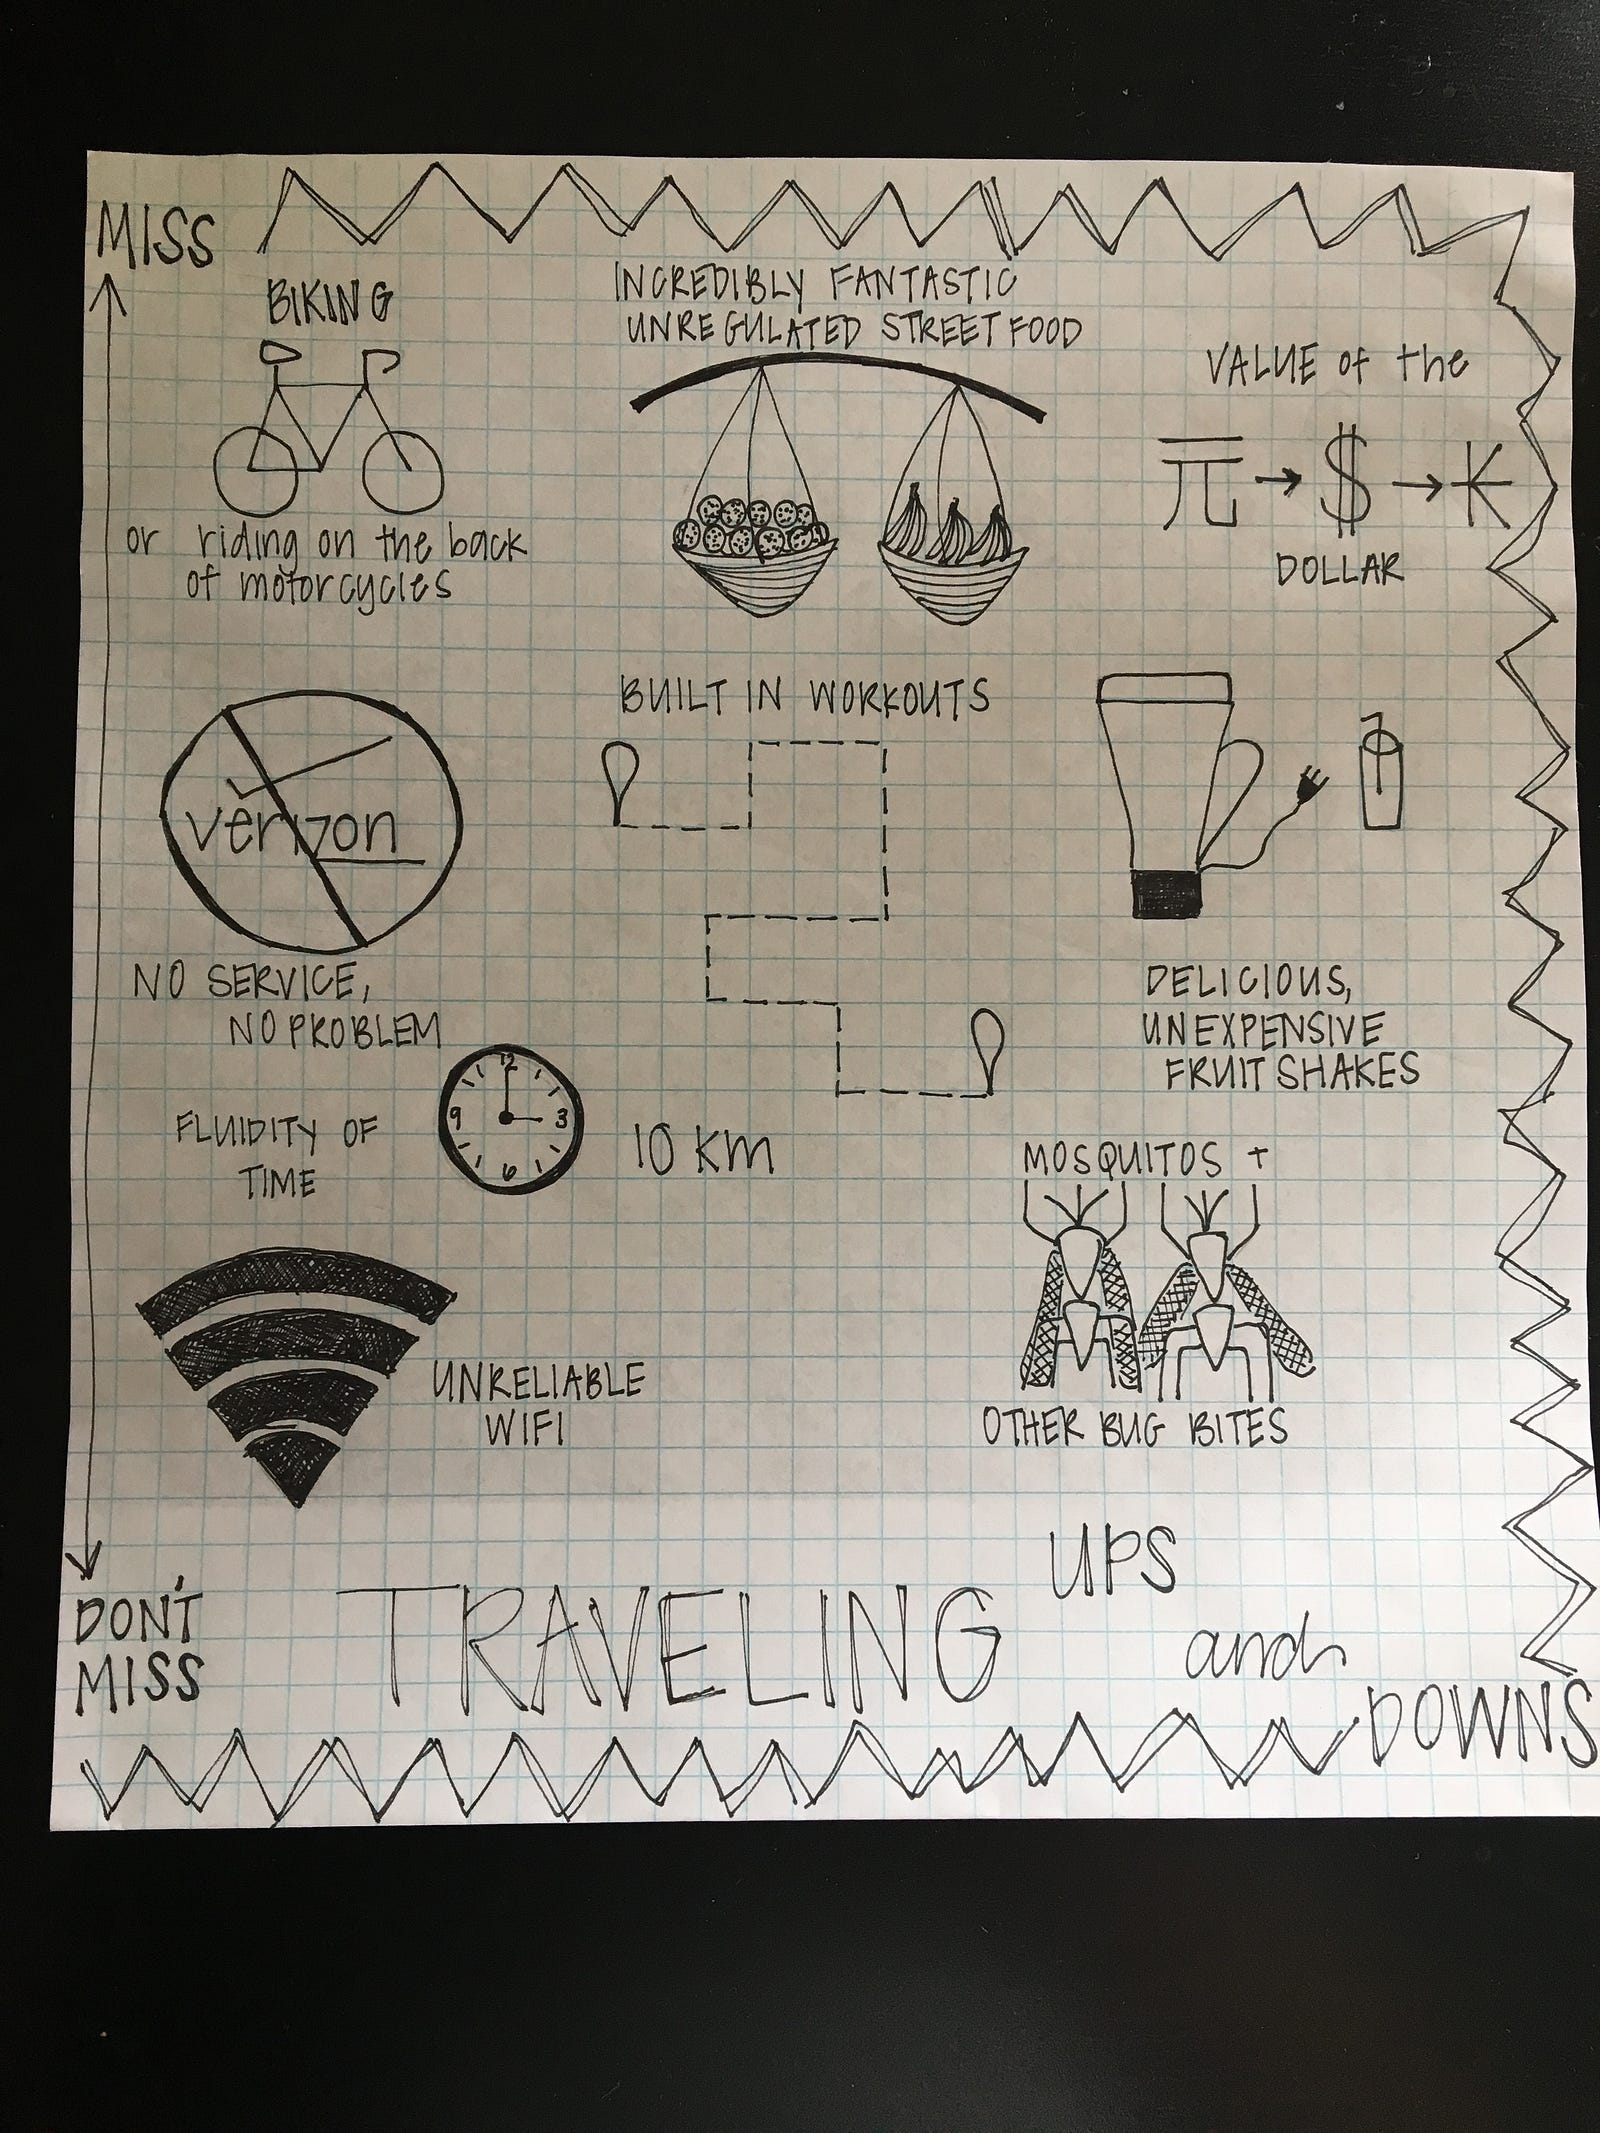 MISS
BIKING
or riding on the back
of motorcycles
INCREDIBLY FANTASTIC
UNREGULATED STREET FOOD
VALUE of the
元→$→₭
DOLLAR
verizon
NO SERVICE,
NO PROBLEM
BUILT IN WORKOUTS
10 km
DELICIOUS,
UNEXPENSIVE
FRUIT SHAKES
FLUIDITY OF
TIME
12
9 3
6
MOSQUITOS +
OTHER BUG BITES
UNRELIABLE
WIFI
DON'T
MISS
TRAVELING
UPS
and
DOWNS